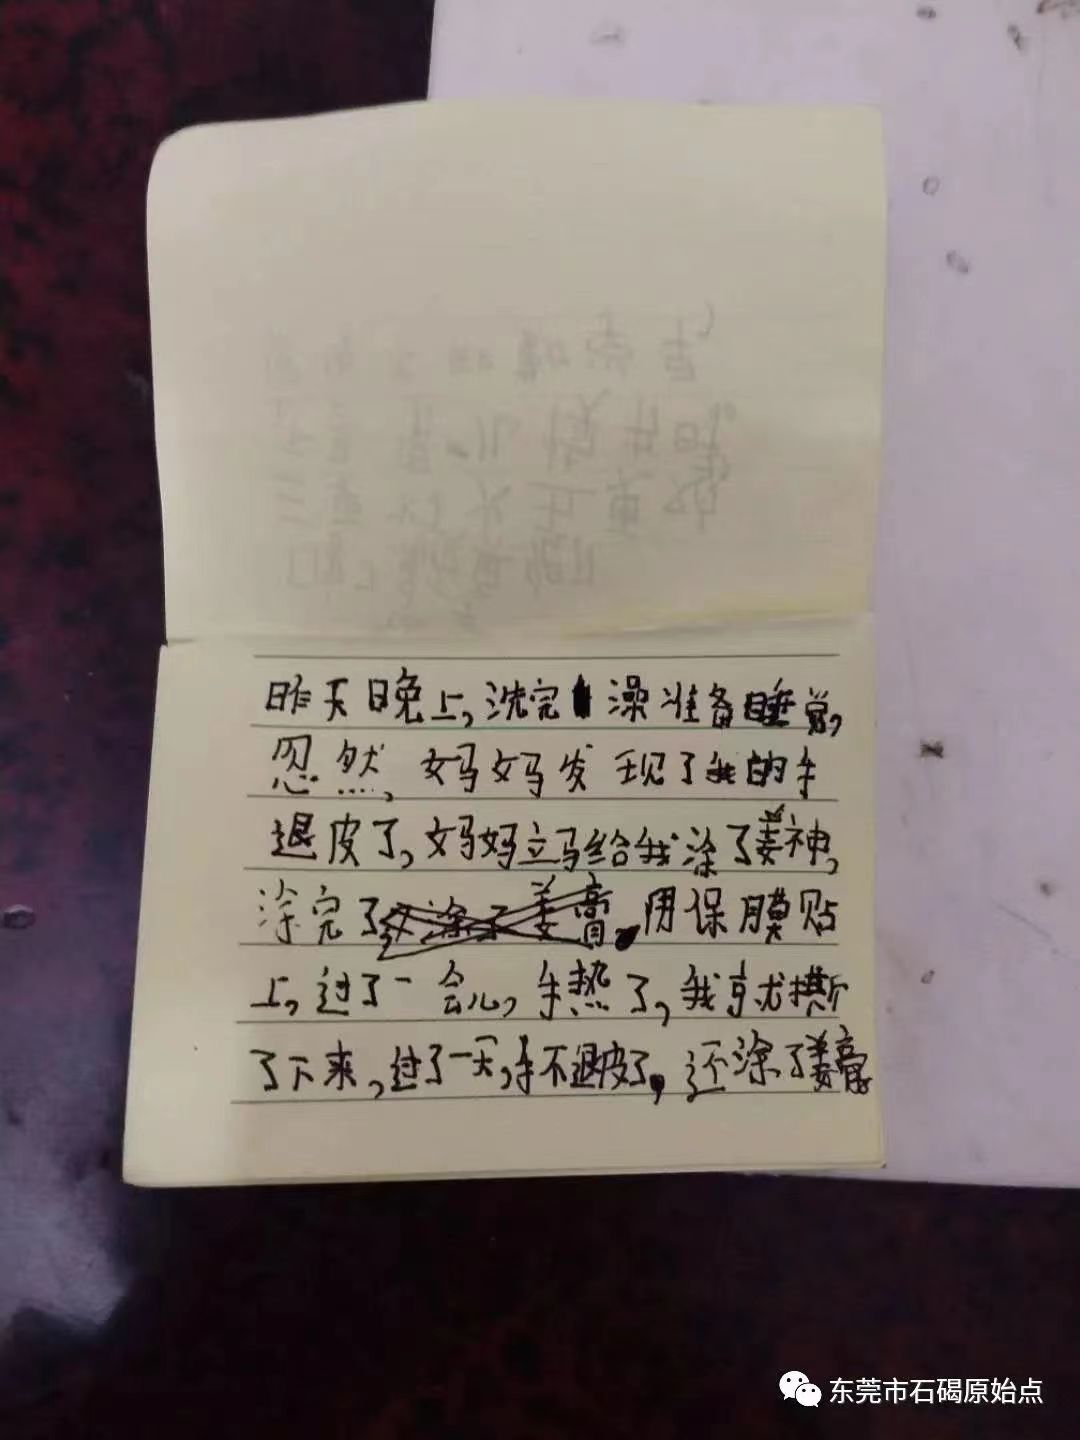 昨天晚上,洗完澡准备睡觉,
忽然,妈妈发现了我的手
退皮了,妈妈立马给我涂了姜神,
涂完了用保膜贴
上,过了一会儿,手热了,我就撕
了下来,过了一天,手不退皮了,还涂了姜膏
东莞市石碣原始点